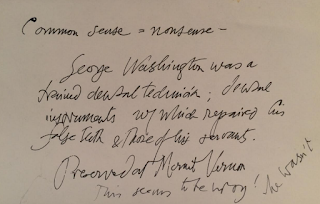 Common sense = nonsense –
George Washington was a
trained dental technician; dental
instruments w/ which repaired his
false teeth & those of his servants.
Preserved at Mount Vernon
This seems to be wrong! he wasn't